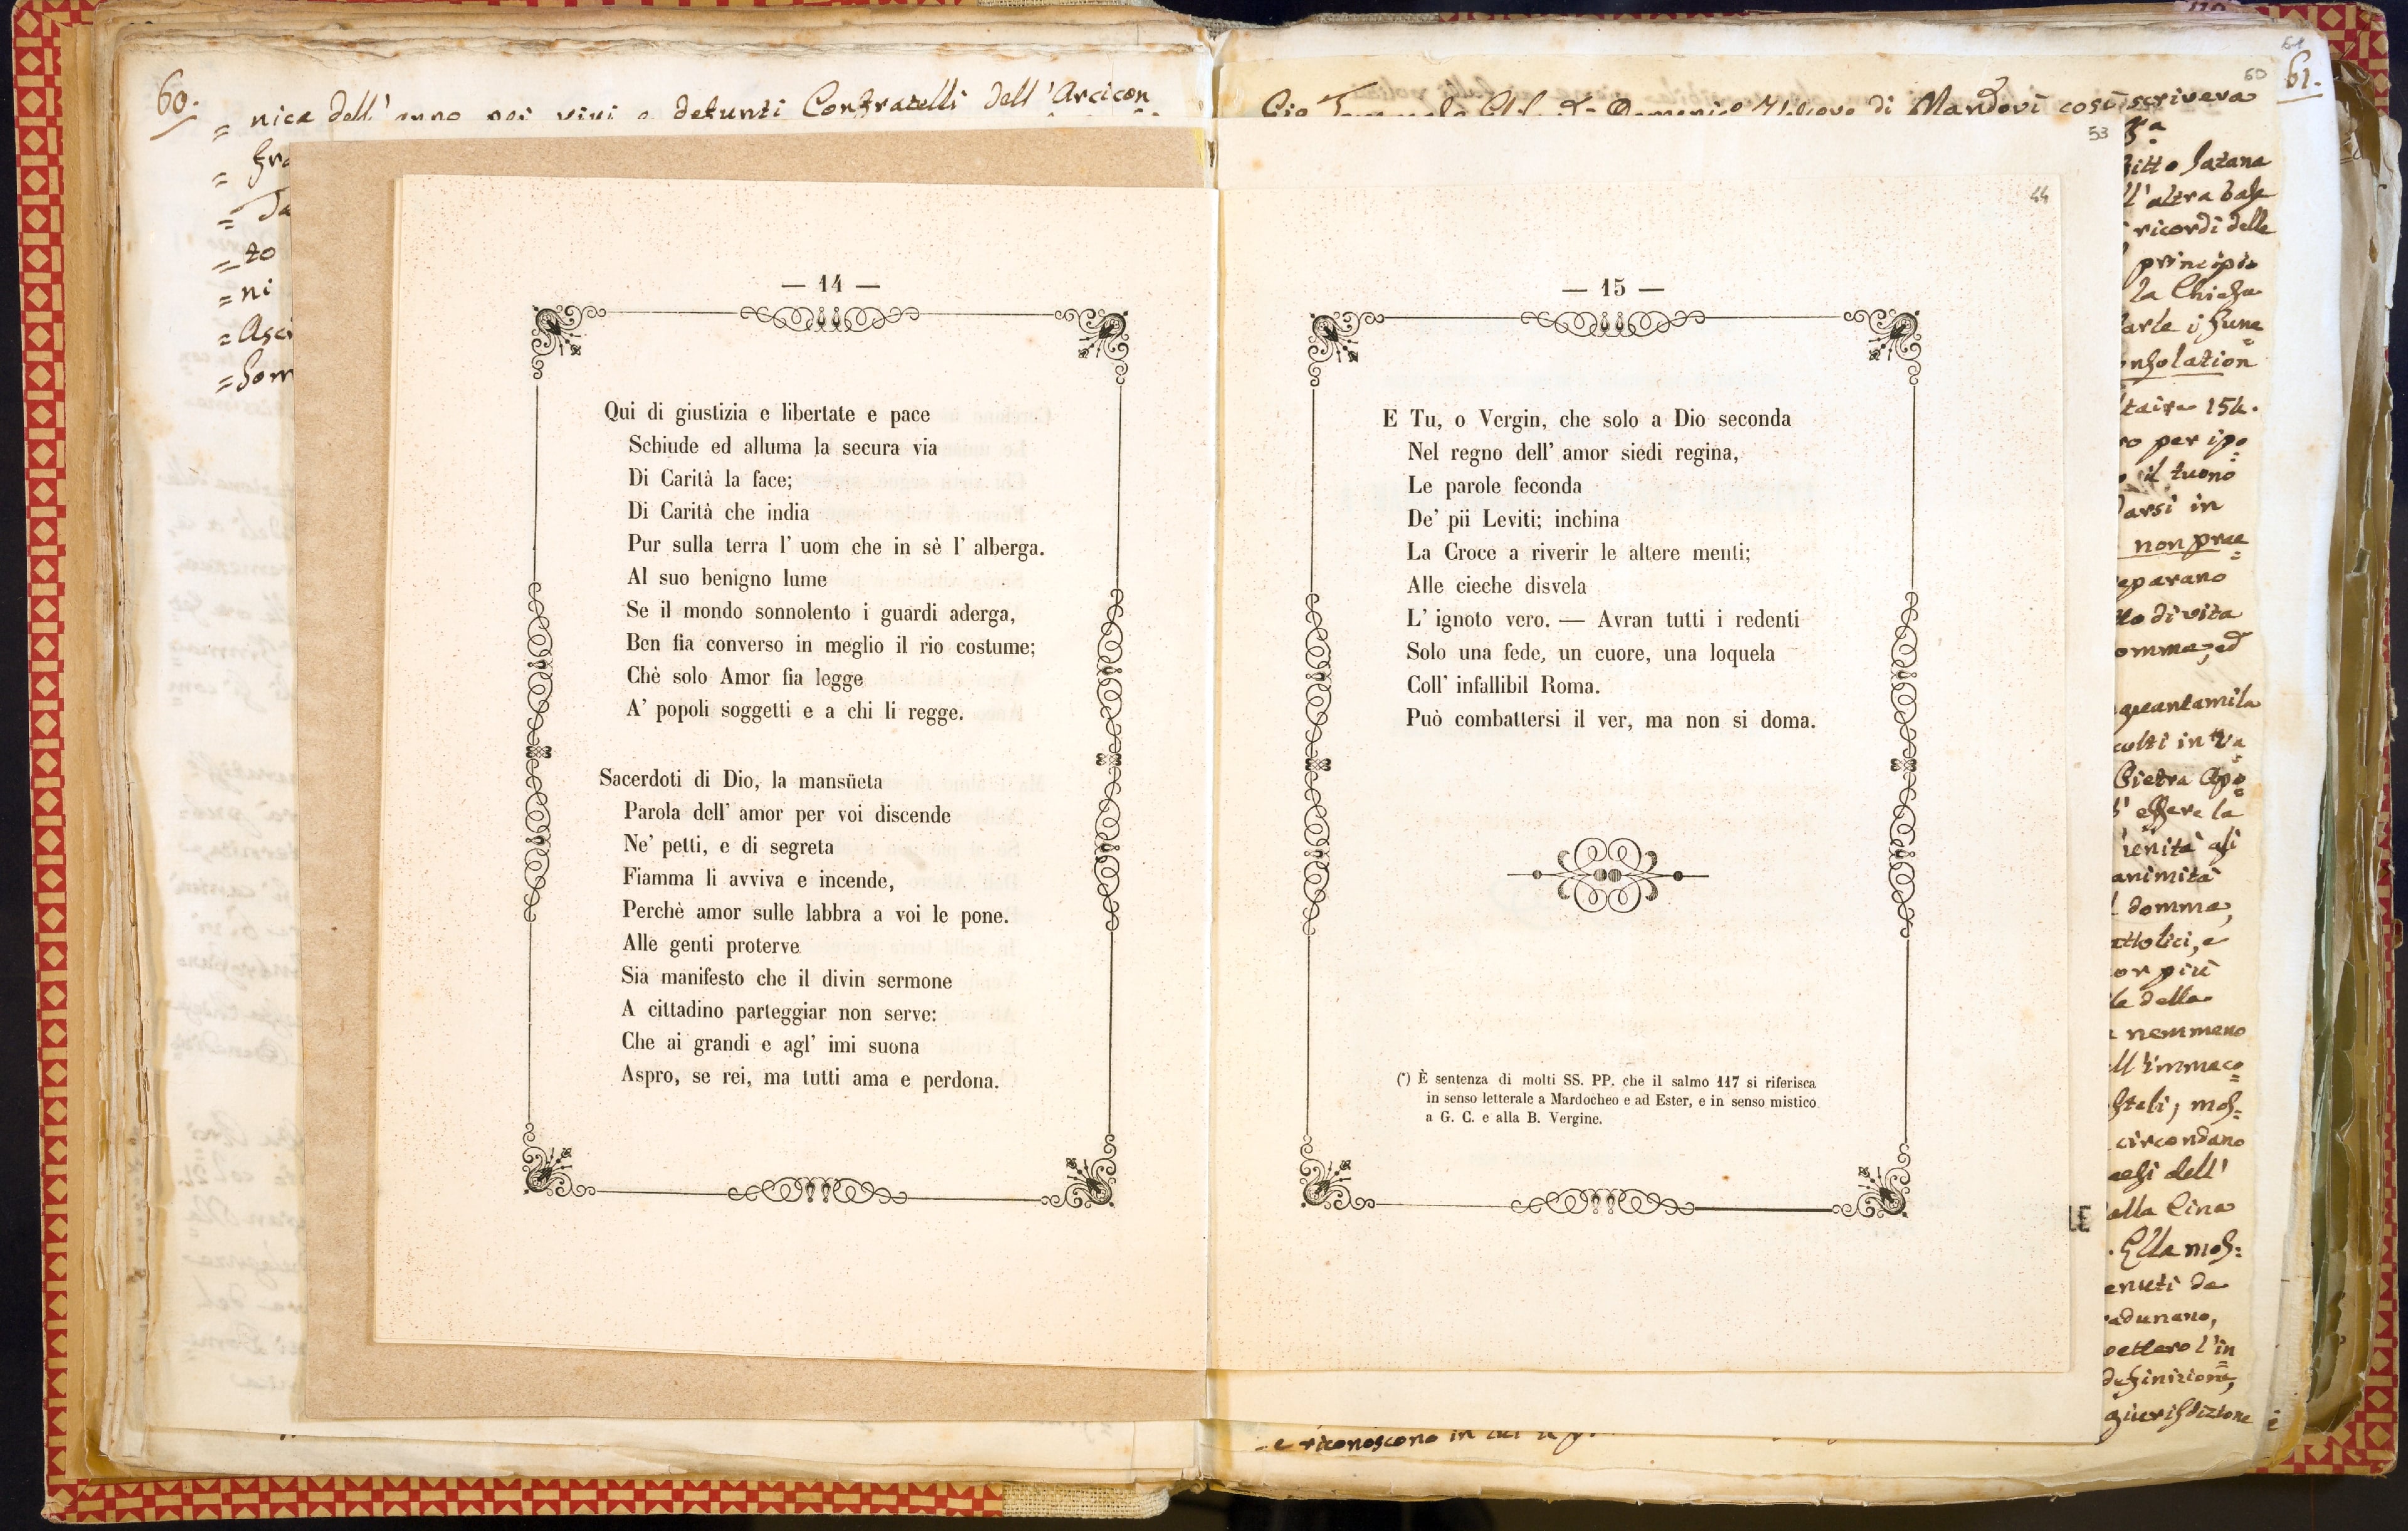 60.
= nica dell' anno pei vivi e defunti Confratelli dell' Arcicon
= to
= ni
— 14 —
Qui di giustizia e libertate e pace
Schiude ed alluma la secura via
Di Carità la face;
Di Carità che india
Pur sulla terra l' uom che in sè l' alberga.
Al suo benigno lume
Se il mondo sonnolento i guardi aderga,
Ben fia converso in meglio il rio costume;
Chè solo Amor fia legge
A' popoli soggetti e a chi li regge.
Sacerdoti di Dio, la mansüeta
Parola dell' amor per voi discende
Ne' petti, e di segreta
Fiamma li avviva e incende,
Perchè amor sulle labbra a voi le pone.
Alle genti proterve
Sia manifesto che il divin sermone
A cittadino parteggiar non serve:
Che ai grandi e agl' imi suona
Aspro, se rei, ma tutti ama e perdona.
61
60
61.
di Mandovì così scriveva
53
44
— 15 —
E Tu, o Vergin, che solo a Dio seconda
Nel regno dell' amor siedi regina,
Le parole feconda
De' pii Leviti; inchina
La Croce a riverir le altere menti;
Alle cieche disvela
L' ignoto vero. — Avran tutti i redenti
Solo una fede, un cuore, una loquela
Coll' infallibil Roma.
Può combattersi il ver, ma non si doma.
(*) È sentenza di molti SS. PP. che il salmo 117 si riferisca
in senso letterale a Mardocheo e ad Ester, e in senso mistico
a G. C. e alla B. Vergine.
LE
Satana
l'altra base
ricordi delle
principio
la Chiesa
154.
per ipo
il tuono
in
non prae
di vita
Pietra Apo
essere la
domma,
or più
della
nemmeno
circondano
dell'
Cina
Ella mos=
de
l'in
definizione,
giurisdizione
e riconoscono in